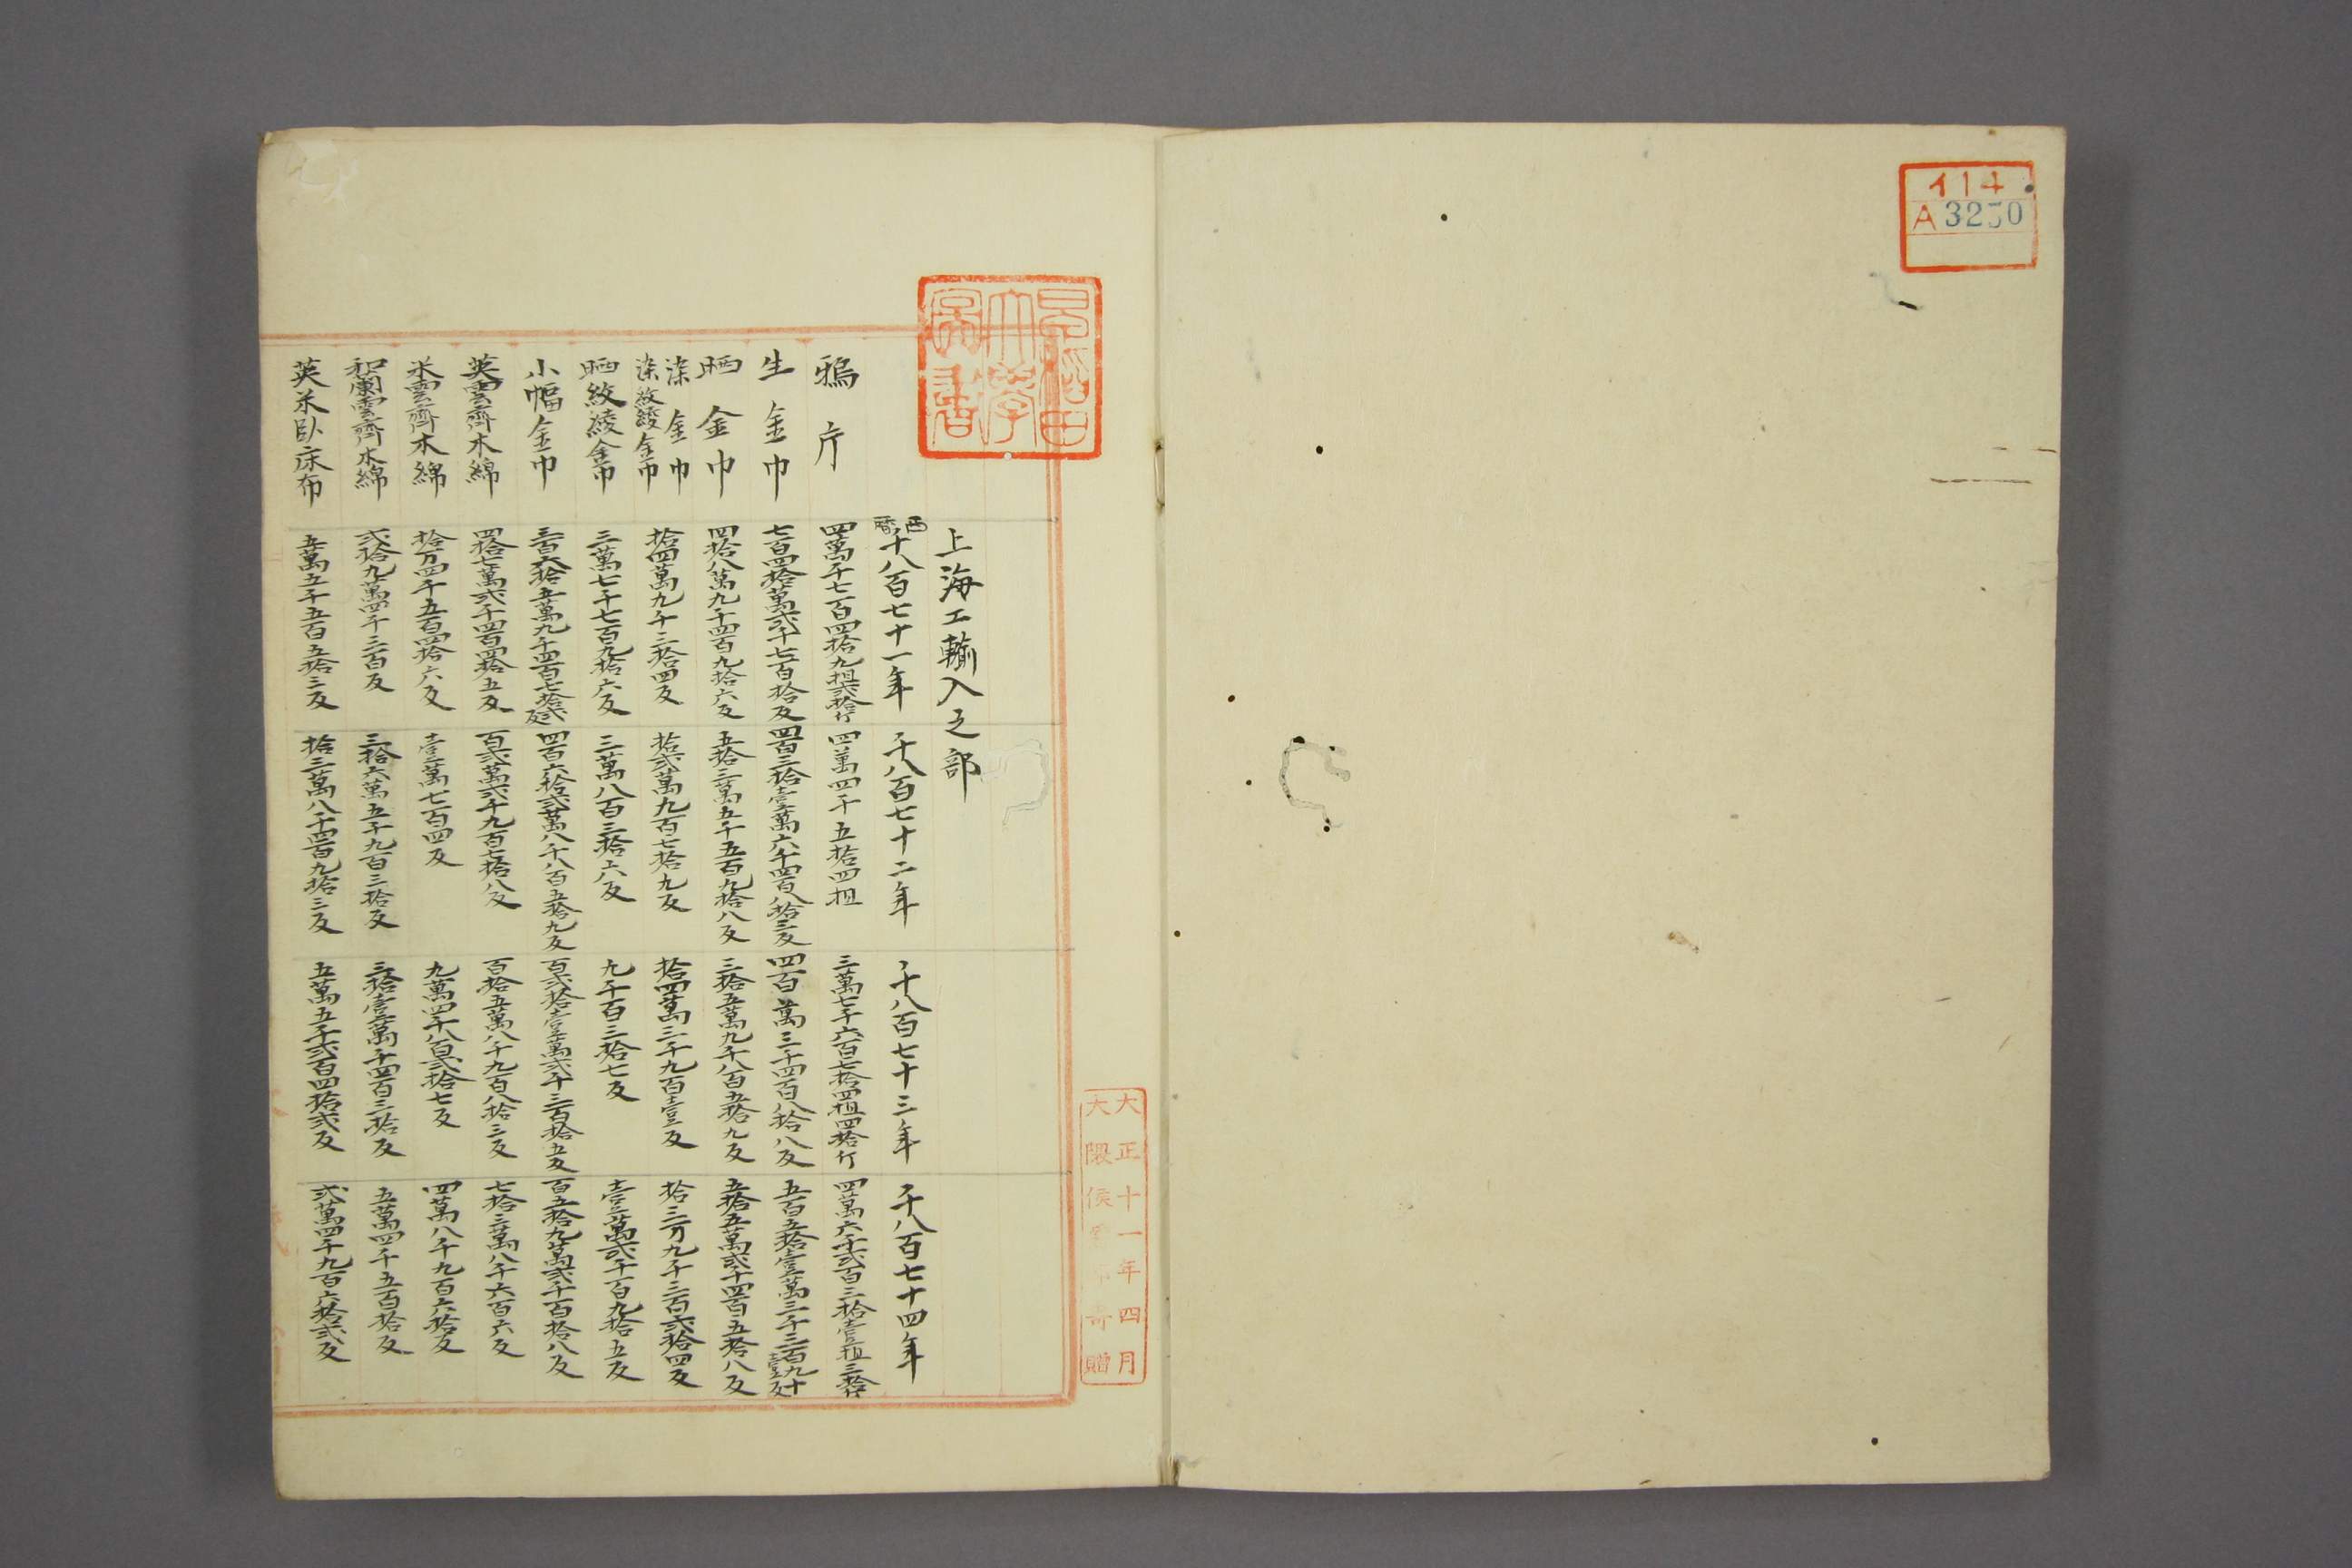 イ14
A 3250
早稲田
大学
図書
大正十一年四月
大隈侯爵家寄贈
上海エ輸入之部
西暦千八百七十一年
千八百七十二年
千八百七十三年
千八百七十四年
鴉片
四萬千七百四拾九担弐拾斤
四萬四千五拾四担
三萬七千六百七拾四担四拾斤
四萬六千弐百三拾壹担三拾斤
生金巾
七百四拾萬弐千七百拾反
四百三拾壹萬六千四百八拾三反
四百萬三千四百八拾八反
五百五拾壹萬三千三百九十壹反
晒金巾
四拾八萬九千四百九拾六反
五拾三萬五千五百九拾八反
三拾五萬九千八百五拾九反
五拾五萬弐千四百五拾八反
染金巾
染紋綾金巾
拾四萬九千三拾四反
拾弐萬九百七拾九反
拾四萬三千九百壹反
拾三万九千三百弐拾四反
晒紋綾金巾
三萬七千七百九拾六反
三萬八百三拾六反
九千百三拾七反
壹萬弐千百九拾五反
小幅金巾
三百六拾五萬九千四百七拾弐反
四百六拾弐萬八千八百五拾九反
百弐拾壹萬弐千三百拾五反
百五拾九萬弐千百拾八反
英雲齊木綿
四拾七萬弐千四百四拾五反
百弐萬弐千九百七拾八反
百拾五萬八千九百八拾三反
七拾三萬八千六百六反
米雲齊木綿
拾万四千五百四拾六反
壹萬七百四反
九萬四千八百弐拾七反
四萬八千九百六拾反
和蘭雲齊木綿
弐拾九萬四千三百反
三拾六萬五千九百三拾反
三拾壹萬千四百三拾反
五萬四千五百拾反
英米臥床布
五萬五千五百五拾三反
拾三萬八千四百九拾三反
五萬五千弐百四拾弐反
弐萬四千九百六拾弐反